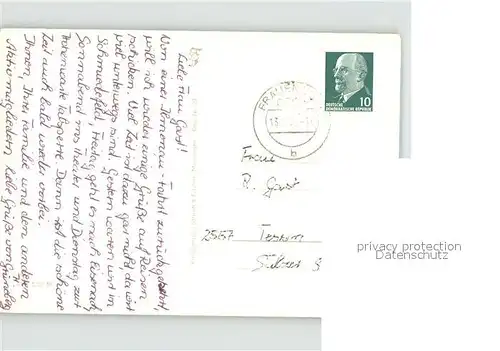 Liebe Frau Gast!
Von einer Ilmenau-Fahrt zurückgekehrt,
will ich wieder einige Grüße auf Reisen
schicken. Viel Zeit ist dazu gar nicht, da wir
viel unterwegs sind. Gestern waren wir in
Schmiedefeld, Freitag geht es nach Eisenach,
Sonnabend ins Theater und Dienstag zur
Talsperre. Dann ist die schöne
Zeit auch bald wieder vorbei.
Ihnen, Ihrer Familie und den anderen
Aktivmitgliedern liebe Grüße von
DEUTSCHE
DEMOKRATISCHE REPUBLIK
10
b
Frau
R. Gast
privacy protection
Datenschutz